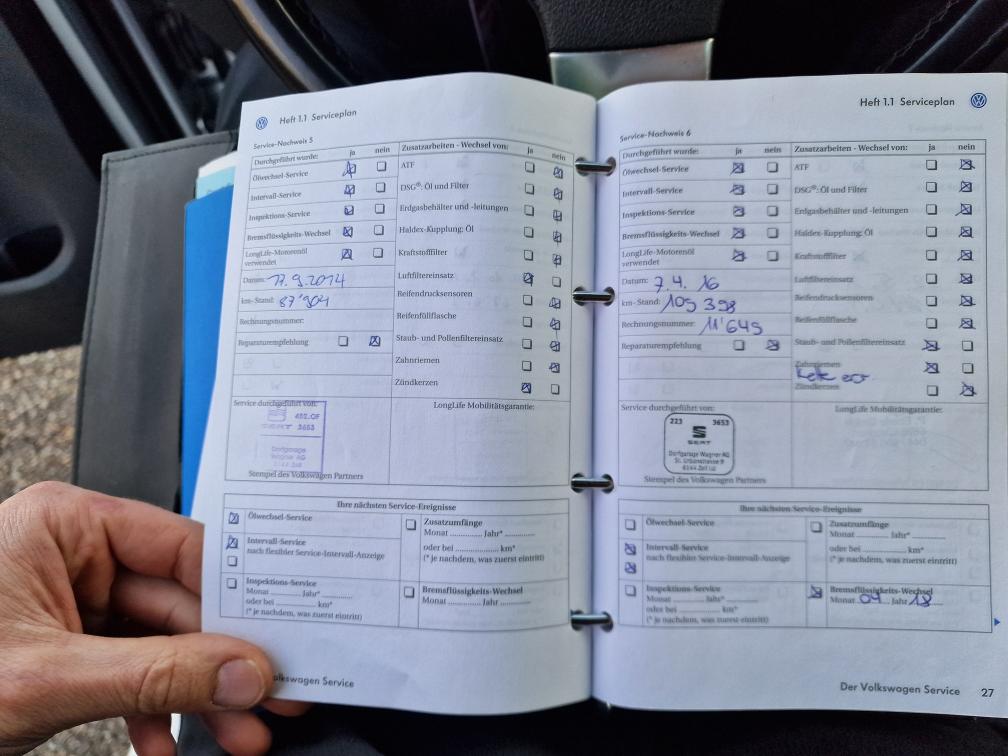 Heft 1.1 Serviceplan
Service-Nachweis 5
Durchgeführt wurde: ja nein
Ölwechsel-Service
Intervall-Service
Inspektions-Service
Bremsflüssigkeits-Wechsel
LongLife-Motorenöl
verwendet
Datum: 17.9.2014
km-Stand: 87'904
Rechnungsnummer:
Reparaturempfehlung
Zusatzarbeiten - Wechsel von: ja nein
ATF
DSG®: Öl und Filter
Erdgasbehälter und -leitungen
Haldex-Kupplung: Öl
Kraftstofffilter
Luftfiltereinsatz
Reifendrucksensoren
Reifenfüllflasche
Staub- und Pollenfiltereinsatz
Zahnriemen
Zündkerzen
Service durchgeführt von:
SEAT 3653
Dorfgarage
Wagner AG
6144 Zell
Stempel des Volkswagen Partners
LongLife Mobilitätsgarantie:
Ihre nächsten Service-Ereignisse
Ölwechsel-Service
Intervall-Service
nach flexibler Service-Intervall-Anzeige
Inspektions-Service
Monat ............ Jahr* ............
oder bei ............ km*
(* je nachdem, was zuerst eintritt)
Zusatzumfänge
Monat ............ Jahr* ............
oder bei ............ km*
(* je nachdem, was zuerst eintritt)
Bremsflüssigkeits-Wechsel
Monat ............ Jahr ............
olkswagen Service
Heft 1.1 Serviceplan
Service-Nachweis 6
Durchgeführt wurde: ja nein
Ölwechsel-Service
Intervall-Service
Inspektions-Service
Bremsflüssigkeits-Wechsel
LongLife-Motorenöl
verwendet
Datum: 7.4.16
km-Stand: 109 398
Rechnungsnummer: 11'649
Reparaturempfehlung
Zusatzarbeiten - Wechsel von: ja nein
ATF
DSG®: Öl und Filter
Erdgasbehälter und -leitungen
Haldex-Kupplung: Öl
Kraftstofffilter
Luftfiltereinsatz
Reifendrucksensoren
Reifenfüllflasche
Staub- und Pollenfiltereinsatz
Zahnriemen
Zündkerzen
Service durchgeführt von:
223 3653
SEAT
Dorfgarage Wagner AG
St. Urbanstrasse 9
6144 Zell LU
Stempel des Volkswagen Partners
LongLife Mobilitätsgarantie:
Ihre nächsten Service-Ereignisse
Ölwechsel-Service
Intervall-Service
nach flexibler Service-Intervall-Anzeige
Inspektions-Service
Monat ............ Jahr* ............
oder bei ............ km*
(* je nachdem, was zuerst eintritt)
Zusatzumfänge
Monat ............ Jahr* ............
oder bei ............ km*
(* je nachdem, was zuerst eintritt)
Bremsflüssigkeits-Wechsel
Monat 04 Jahr 18
Der Volkswagen Service 27